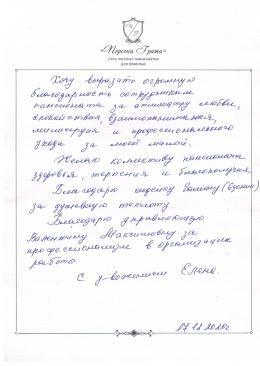 «Персона Грата»
Сеть частных пансионатов
для пожилых
Хочу выразить огромную
благодарность сотрудникам
пансионата за атмосферу любви,
спокойствия, взаимопонимания,
милосердия и профессионального
ухода за моей мамой.
Желаю коллективу пансионата
здоровья, терпения и благополучия
Благодарю сиделку Галину
за душевную теплоту.
Благодарю управляющую
Валентину Максимовну за
профессионализм в организации
работы.
С уважением Елена.
17.12.2020г